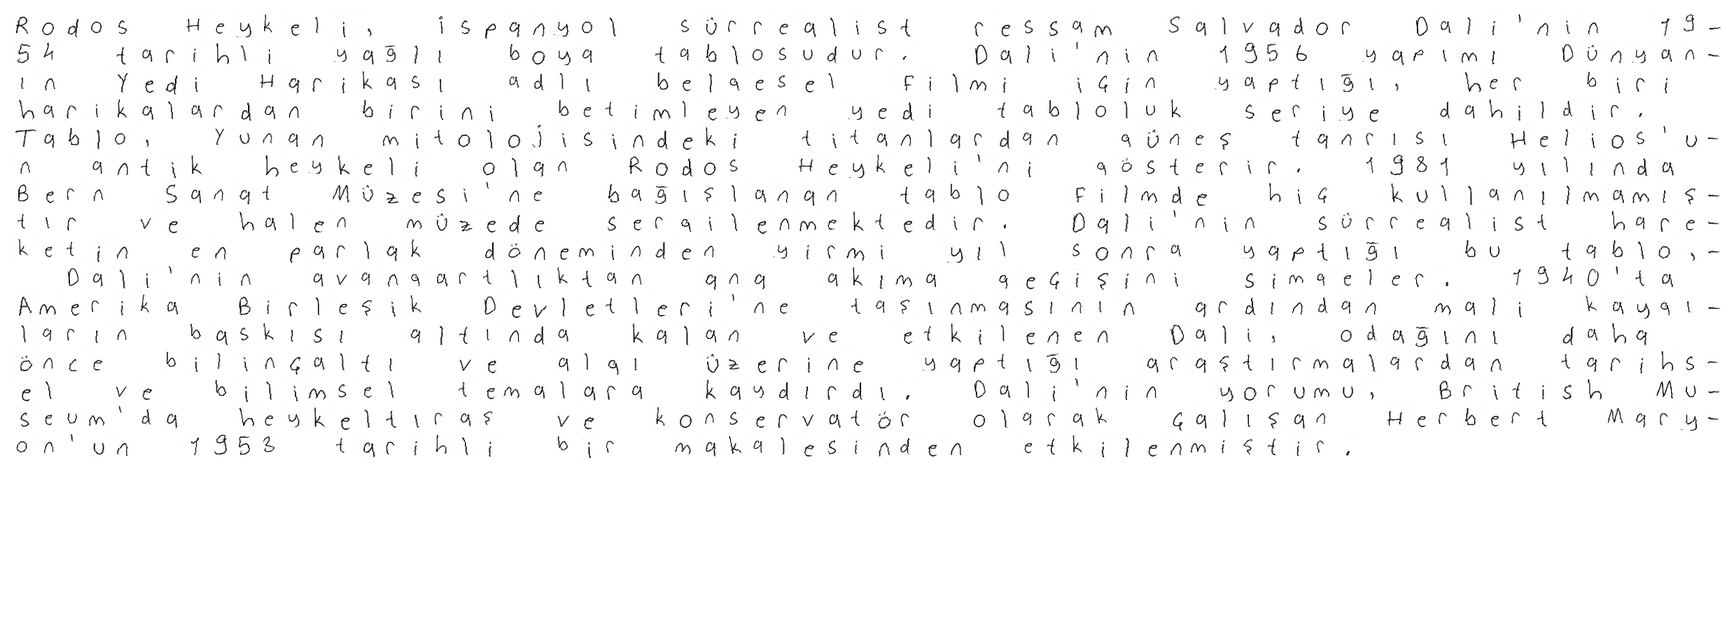 Rodos Heykeli, İspanyol sürrealist ressam Salvador Dali'nin 19-
54 tarihli yağlı boya tablosudur. Dali'nin 1956 yapımı Dünyan-
ın Yedi Harikası adlı belgesel filmi için yaptığı, her biri
harikalardan birini betimleyen yedi tabloluk seriye dahildir.
Tablo, Yunan mitolojisindeki titanlardan güneş tanrısı Helios'u-
n antik heykeli olan Rodos Heykeli'ni gösterir. 1981 yılında
Bern Sanat Müzesi'ne bağışlanan tablo filmde hiç kullanılmamış-
tır ve halen müzede sergilenmektedir. Dali'nin sürrealist hare-
ketin en parlak döneminden yirmi yıl sonra yaptığı bu tablo,-
Dali'nin avangartlıktan ana akıma geçişini simgeler. 1940'ta
Amerika Birleşik Devletleri'ne taşınmasının ardından mali kaygı-
ların baskısı altında kalan ve etkilenen Dali, odağını daha
önce bilinçaltı ve algı üzerine yaptığı araştırmalardan tarihs-
el ve bilimsel temalara kaydırdı. Dali'nin yorumu, British Mu-
seum'da heykeltıraş ve konservatör olarak çalışan Herbert Mary-
on'un 1953 tarihli bir makalesinden etkilenmiştir.